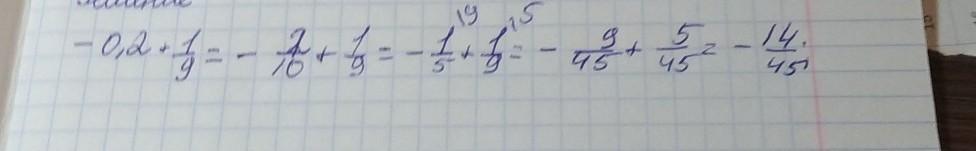 -0,2 + 1/9 = - 2/10 + 1/9 = - 1/5 \9 + 1/9 \5 = - 9/45 + 5/45 = - 14/45.